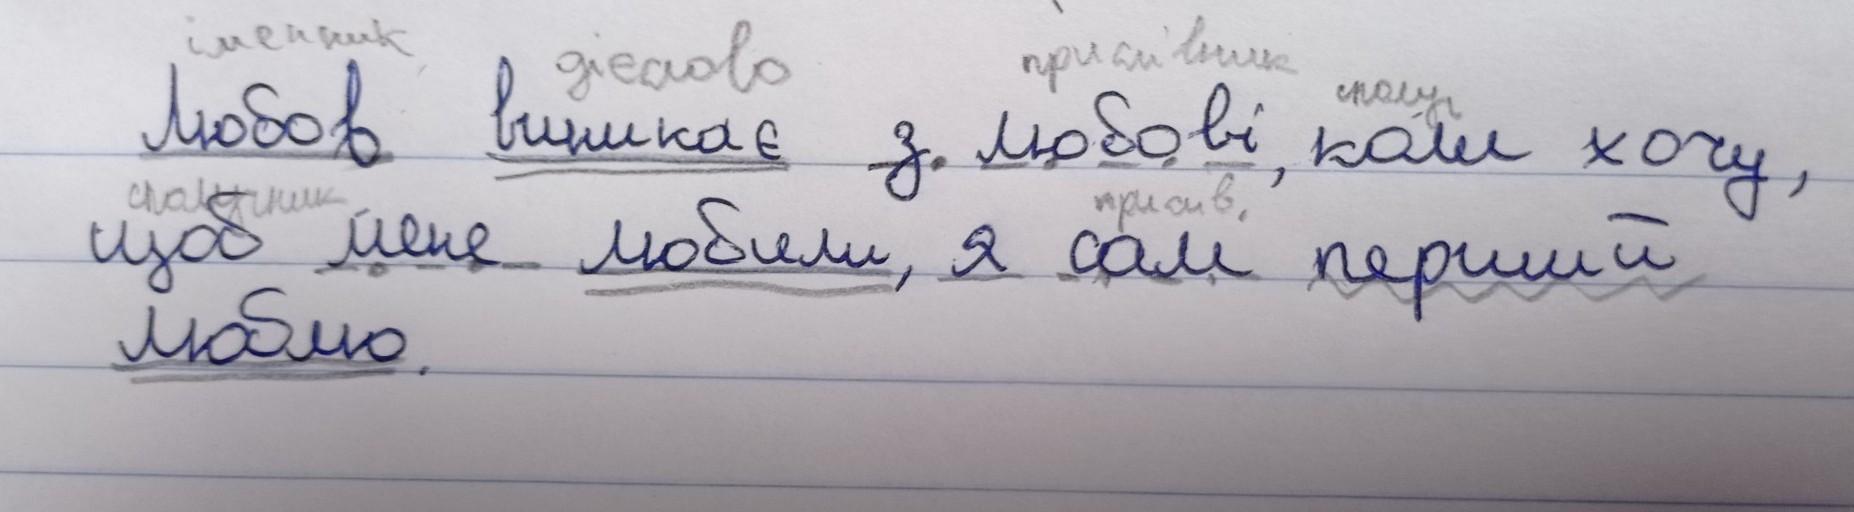 іменник дієслово прислівник спол.
Любов виникає з любові, коли хочу,
сполучник присл.
щоб мене любили, я сам перший
люблю.